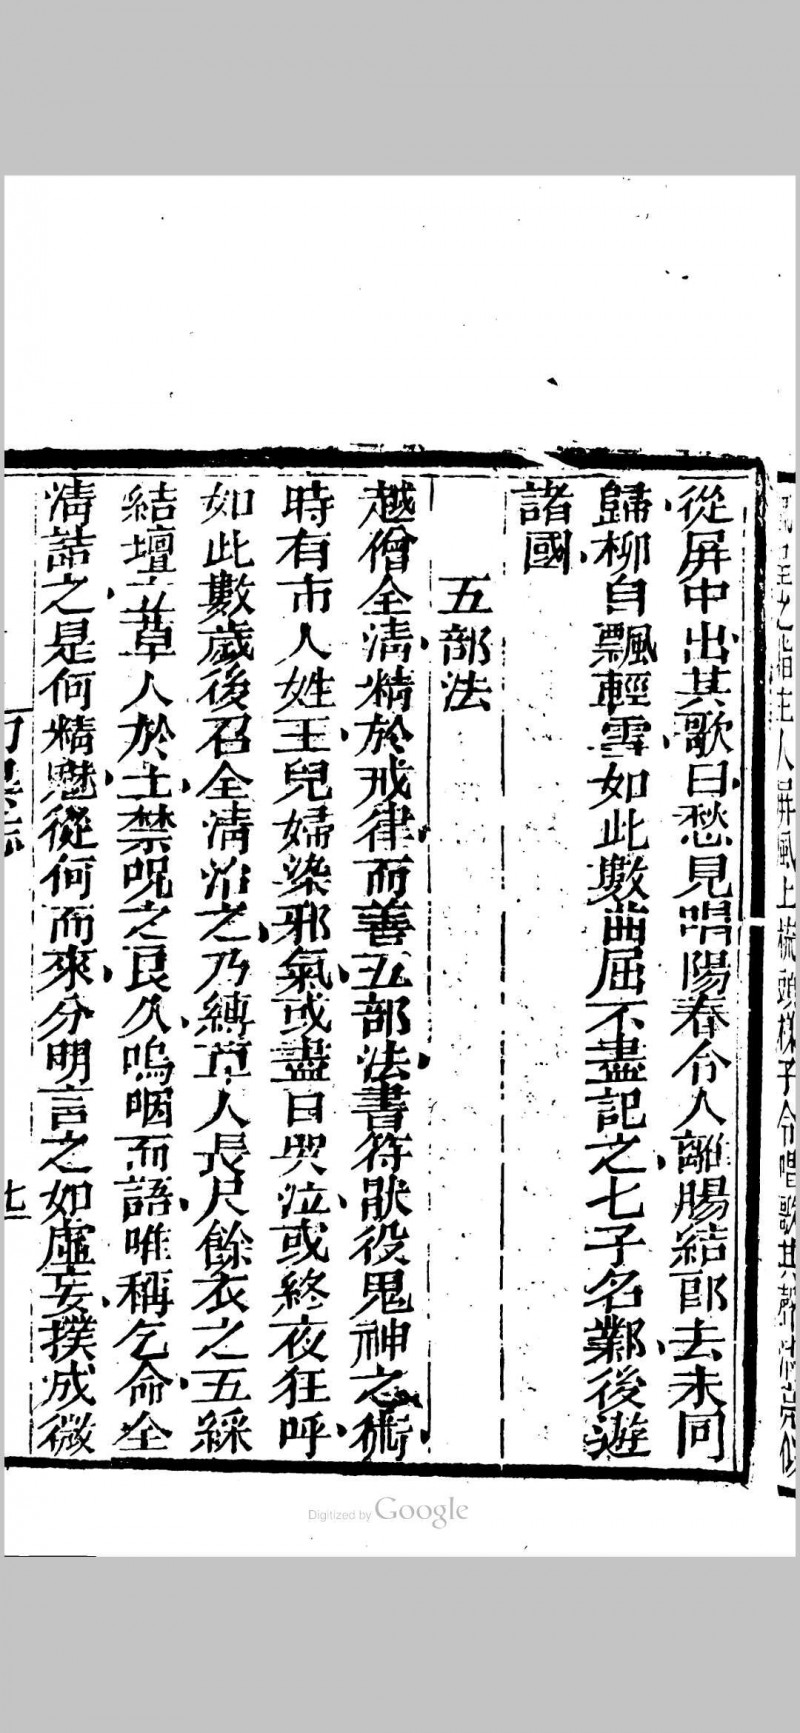 從屏中出其歌曰愁見唱陽春令人離腸結郎去未同
歸柳自飄輕雪如此數曲屈不盡記之七子名鄴後遊
諸國
五部法
越僧全淸精於戒律而善五部法書符猒役鬼神之術
時有市人姓王兒婦染邪氣或盡日哭泣或終夜狂呼
如此數歲後召全淸治之乃縛草人長尺餘衣之五綵
結壇立草人於上禁呪之良久嗚咽而語唯稱乞命全
淸詰之是何精魅從何而來分明言之如虛妄撲成微
Digitized by Google